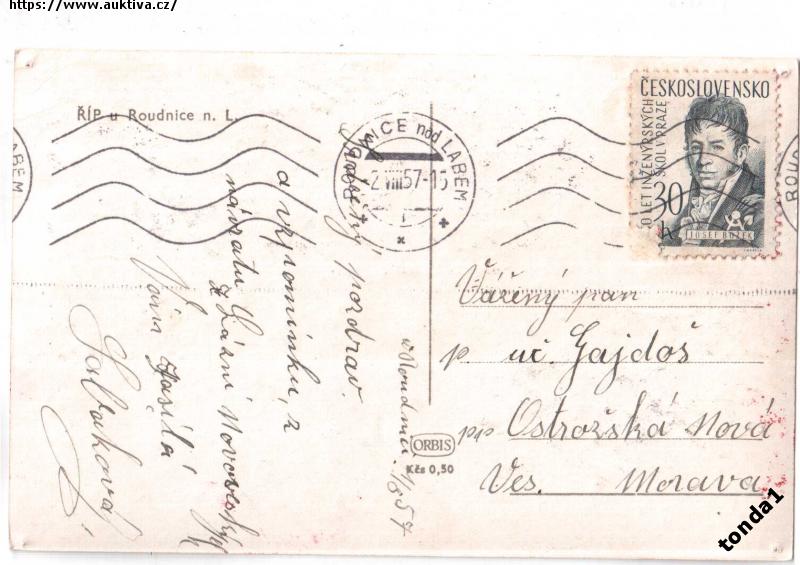 https://www.auktiva.cz/
ŘÍP u Roudnice n. L.
ROUDNICE nad LABEM
-2.VIII.57-15
LABEM
ROUD
ČESKOSLOVENSKO
LET INŽENÝRSKÝCH
ŠKOL V PRAZE
30
h
JOSEF BOŽEK
Srdečný pozdrav
a vzpomínku z
návratu z Lázní Novoveských
Vám posílá
v Roudnici 1/8 57
ORBIS
Kčs 0,50
Vážený pan
p uč. Gajdoš
pp Ostrožská Nová
Ves. Morava
tonda1